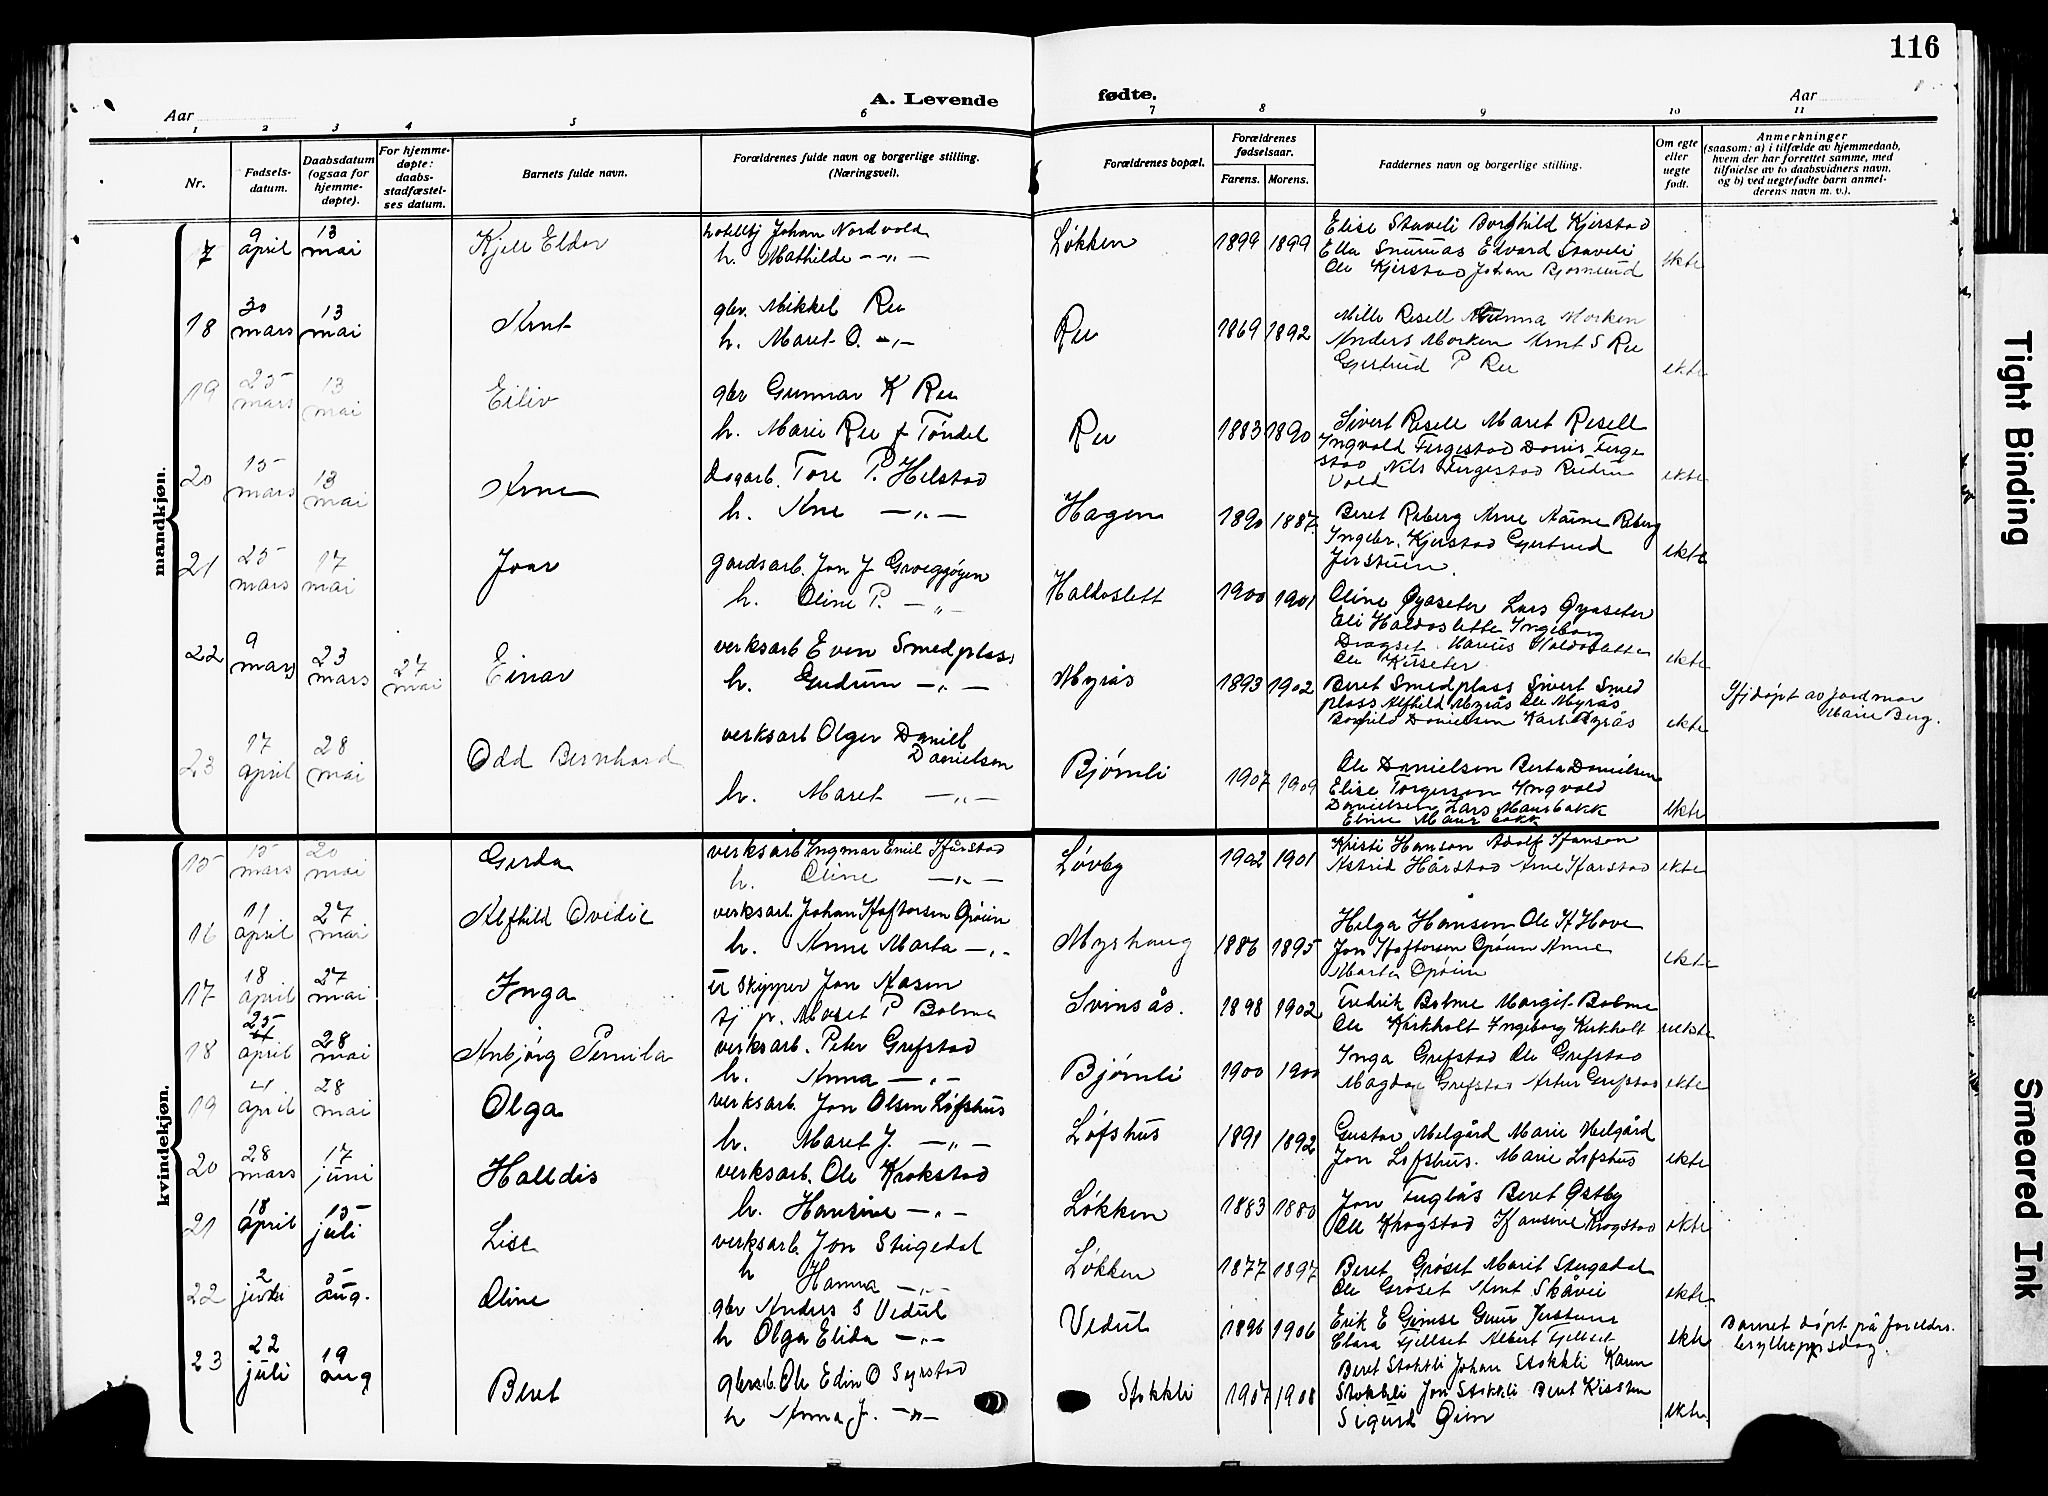 116
A. Levende fødte.
Aar Aar
1 2 3 4 5 6 7 8 9 10 11
Nr.
Fødsels-
datum.
Daabsdatum
(ogsaa for
hjemme-
døpte).
For hjemme-
døpte:
daabs-
stadfæstel-
ses datum.
Barnets fulde navn.
Forældrenes fulde navn og borgerlige stilling.
(Næringsvei).
Forældrenes bopæl.
Forældrenes
fødselsaar.
Farens. Morens.
Faddernes navn og borgerlige stilling.
Om egte
eller
uegte
født.
Anmerkninger
(saasom: a) i tilfælde av hjemmedaab,
hvem der har forrettet samme, med
tilføielse av to daabsvidners navn,
og b) ved uegtefødte barn anmel-
derens navn m. v.).
mandkjøn.
17 9 april 13 mai Kjell Eldar
Johan Nordvold
h. Mathilde —„—
Løkken 1899 1899
Elise Staveli Borghild Kjerstad
Ella Snuruås Edvard Staveli
Ole Kjerstad Johan
ekte
18 30 mars 13 mai Arnt
gbr. Mikkel Ree
h. Maret O. —„—
Ree 1869 1892
Mille Resell Gunna Morken
Anders Morken Arnt S Ree
Gjertrud P Ree
ekte
19 25 mars 13 mai Eiliv
gbr Gunnar K Ree
h. Marie Ree f Tøndel
Ree 1883 1890
Sivert Resell Maret Resell
Ingvald Fergestad Doris Ferge
stad Nils Fergestad
Vold
ekte
20 15 mars 13 mai Arne
Dagarb. Tore P. Helstad
h. Ane —„—
Hagen 1890 1887
Beret Reberg Arne Reberg
Ingebr. Kjerstad Gjertrud
Jerstuen.
ekte
21 25 mars 17 mai Joar
gardsarb. Jon J.
h. Oline P. —„—
Haldoslett 1900 1901
Oline Øyaseter Lars Øyaseter
Eli Haldosletta Ingeborg
Dragset Haldosletta
Ole
ekte
22 9 mars 23 mars 27 mai Einar
verksarb Even Smedplass
h. Gudrun —„—
Myrås 1893 1902
Beret Smedplass Sivert Smed
plass Alfhild Myrås Ole Myrås
Borghild Danielsen Kari Myrås
ekte
Hjdøpt av jordmor
Marie Berg.
23 17 april 28 mai Odd Bernhard
verksarb Olger Daniel
Danielsen
h. Maret —„—
Bjørnli 1907 1909
Ole Danielsen Berta Danielsen
Elise Torgersen Ingvald
Danielsen Lars Maurbakk
Eline Maurbakk
ekte
kvindekjøn.
15 15 mars 20 mai Gerda
verksarb Ingmar Emil Hårstad
h. Oline —„—
Løvby 1902 1901
Kristi Hanson Adolf Hanson
Astrid Hårstad Arne Harstad
ekte
16 11 april 27 mai Alfhild Ovidie
verksarb. Johan Haftorsen Opøien
h. Anne Marta —„—
Myrhaug 1886 1895
Helga Hansen Ole H Hove
Jon Haftorsen Opøien Anne
Marta Opøien
ekte
17 18 april 27 mai Inga
skipper Jon Aasen
tj p. Maret P Bolme
Svinsås. 1898 1902
Fredrik Bolme Margit Bolme
Ole Kirkholt Ingeborg Kirkholt
uekte
18 25 april 28 mai Anbjørg Pernila
verksarb. Peter Grefstad
h. Anna —„—
Bjørnli 1900 1900
Inga Grefstad Ole Grefstad
Magda Grefstad Artur Grefstad
ekte
19 4 april 28 mai Olga
verksarb. Jon Olsen Løfshus
h. Maret J. —„—
Løfshus 1891 1892
Gustav Melgård Marie Melgård
Jon Løfshus. Marie Løfshus
ekte
20 28 mars 17 juni Halldis
verksarb. Ole Krokstad
h. Hansine —„—
Løkken 1883 1880
Jon Fuglås Beret Østby
Ole Krogstad Hansine Krogstad
ekte
21 18 april 15 juli Lise
verksarb Jon Stugedal
h Hanna —„—
Løkken 1877 1897
Beret Grøset Marit Stugadal
Ole Grøset Arnt Skåvei
ekte
22 2 5 aug. Oline
gbr Anders S Vedul
h Olga Elida —„—
Vedul 1896 1906
Erik E Gjeuse Guru Jerstuen
Clara Fjellset Albert Fjellset
ekte
Barnet døpt på foreldr.
bryllupsdag.
23 22 juli 19 aug Beret
Ole Edin O Syrstad
h Anna J. —„—
Stokkli 1907 1908
Beret Stokkli Johan Stokkli Karen
Stokkli Jon Stokkli Beret
Sigurd Øien
ekte
Tight Binding
Smeared Ink